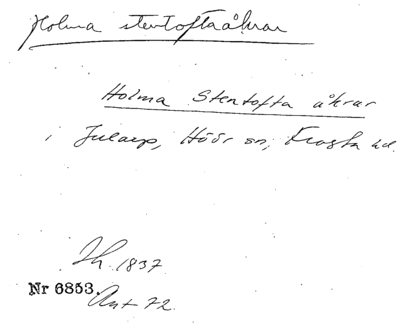 Holma stentoftaåkrar
Holma Stentofta åkrar
i Jularp, Höör sn, Frosta hd.
Sk. 1837
Nr 6853. Ant 72.